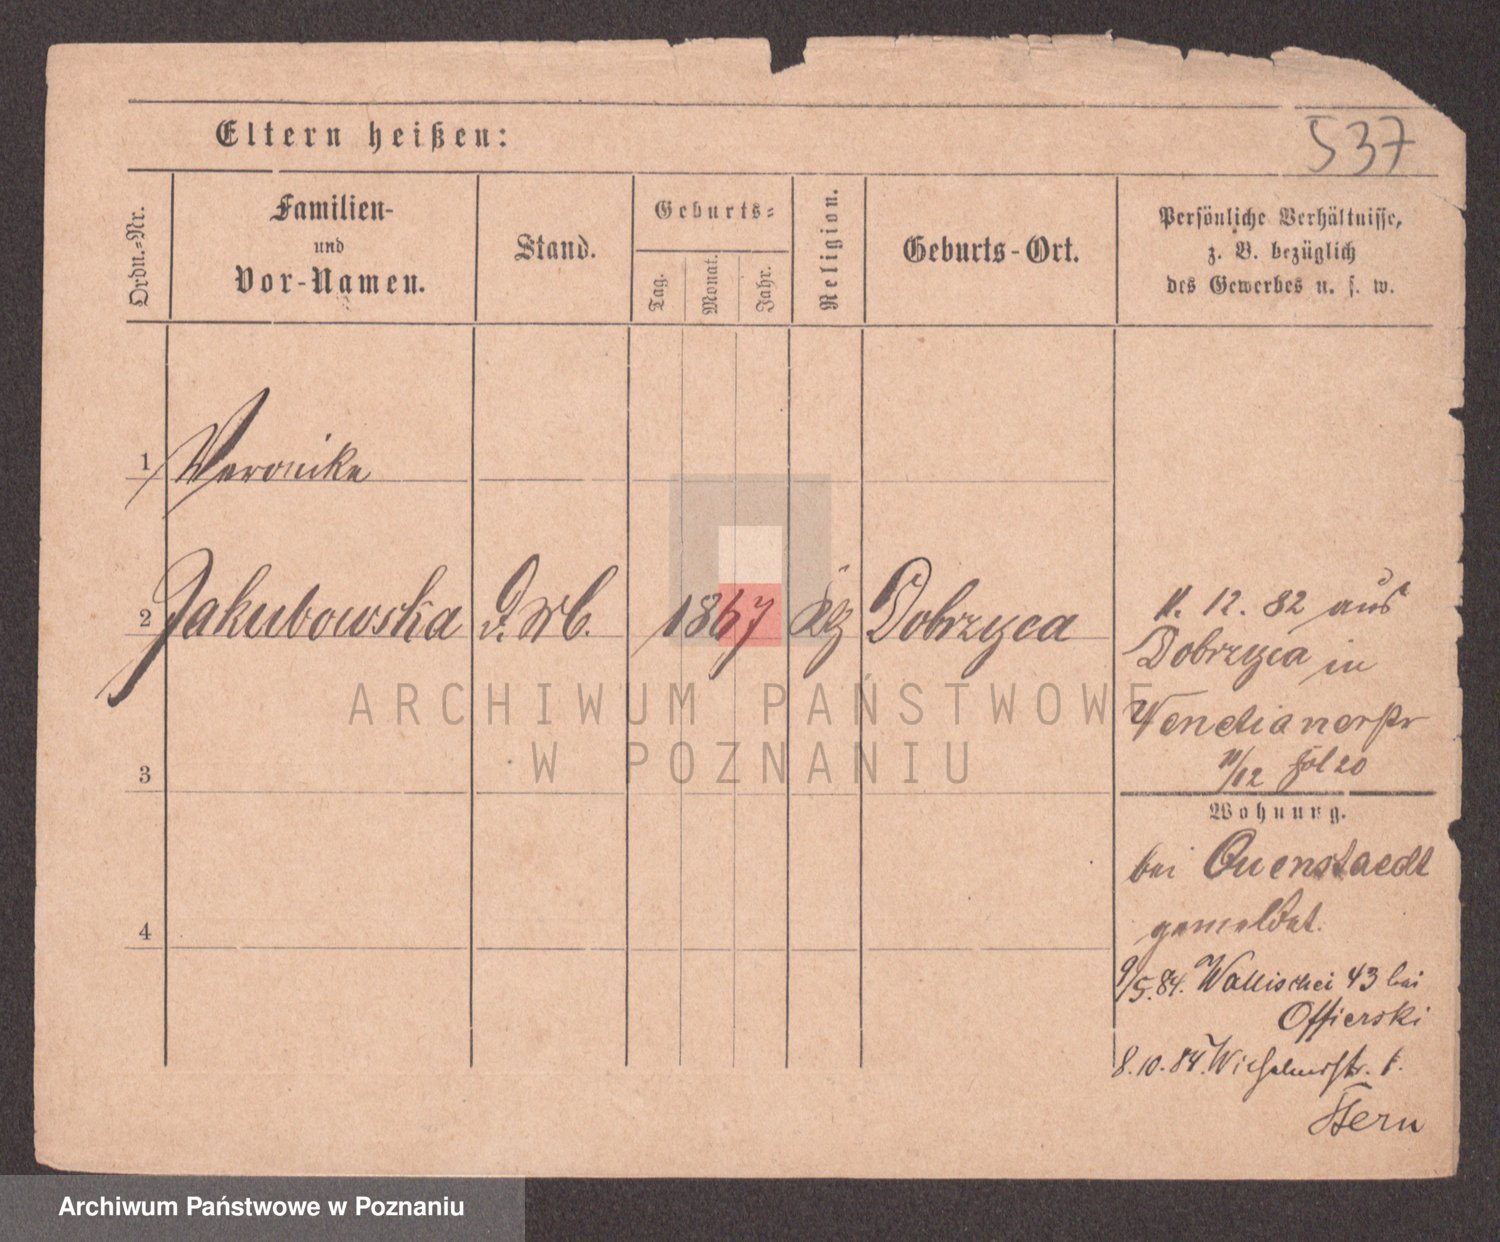 Eltern heißen:
537
Ordn.-Nr.
Familien-
und
Vor-Namen.
Stand.
Geburts-
Tag.
Monat.
Jahr.
Religion.
Geburts-Ort.
Persönliche Verhältnisse,
z. B. bezüglich
des Gewerbes u. s. w.
1 Veronika
2 Jakubowska
1867
Dobrzyca
12. 82 aus
Dobrzyca in
Venetianerstr
Fol 20
3
4
Wohnung.
bei Quenstaedt
gemeldet.
9/5. 84. Wallischei 43 bei
Offierski
8. 10. 84. Wilhelmstr. 1.
Stern
ARCHIWUM PAŃSTWOWE
W POZNANIU
Archiwum Państwowe w Poznaniu